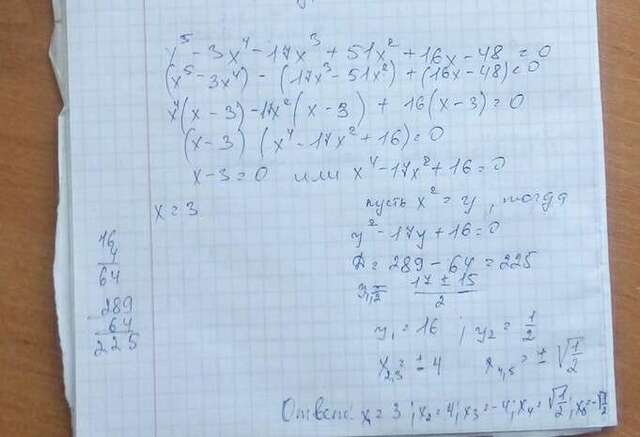 x⁵ - 3x⁴ - 17x³ + 51x² + 16x - 48 = 0
(x⁵ - 3x⁴) - (17x³ - 51x²) + (16x - 48) = 0
x⁴(x - 3) - 17x²(x - 3) + 16(x - 3) = 0
(x - 3) (x⁴ - 17x² + 16) = 0
x - 3 = 0 или x⁴ - 17x² + 16 = 0
x = 3
пусть x² = y, тогда
y² - 17y + 16 = 0
Д = 289 - 64 = 225
y₁,₂ = (17 ± 15)/2
y₁ = 16 ; y₂ = 1/2
x₂,₃ = ± 4 x₄,₅ = ± √(1/2)
Ответ: x₁ = 3 ; x₂ = 4; x₃ = -4; x₄ = √(1/2); x₅ = -√(1/2)
16
4
64
289
- 64
225